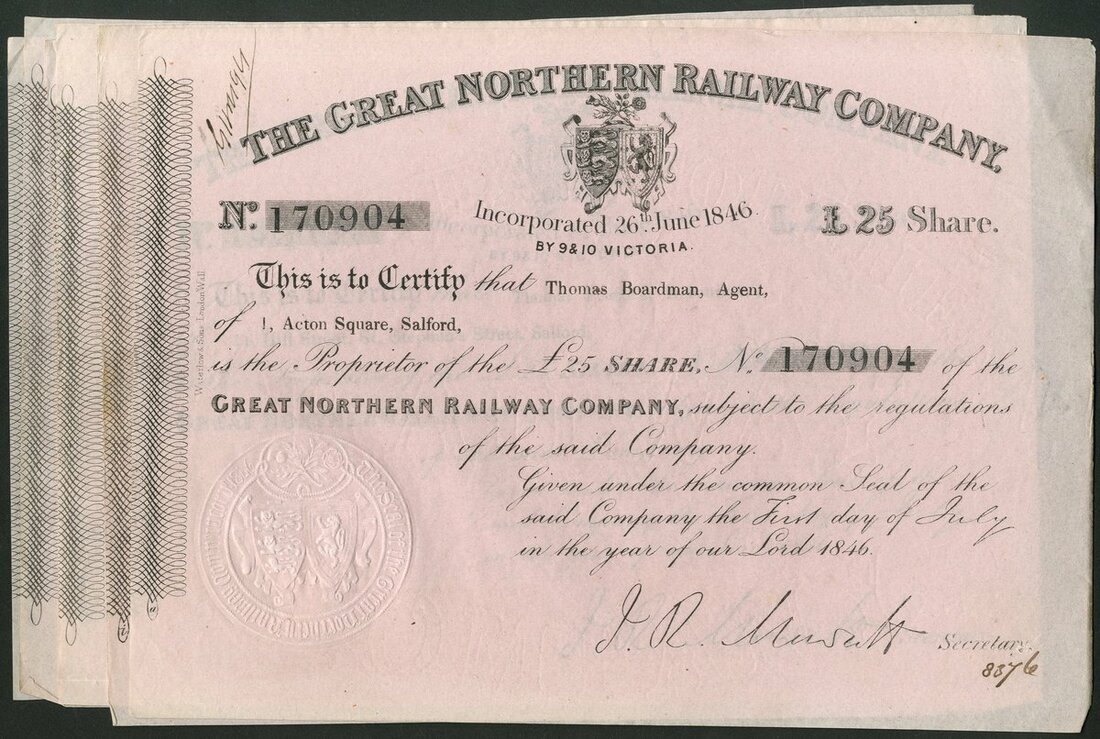 THE GREAT NORTHERN RAILWAY COMPANY,
No. 170904
Incorporated 26th June 1846.
£25 Share.
BY 9 & 10 VICTORIA.
This is to Certify that Thomas Boardman, Agent,
of 1, Acton Square, Salford,
is the Proprietor of the £25 SHARE, No. 170904 of the
GREAT NORTHERN RAILWAY COMPANY, subject to the regulations
of the said Company.
Given under the common Seal of the
said Company the First day of July
in the year of our Lord 1846.
J. R. Mowatt Secretary.
8376
Waterlow & Sons London Wall